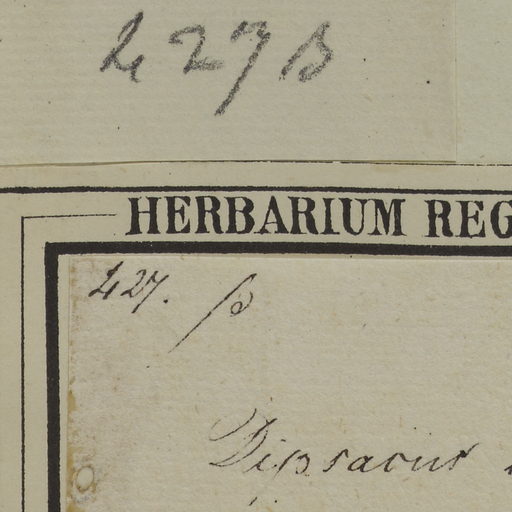 427 B
HERBARIUM REG
427. β
Dipsacus